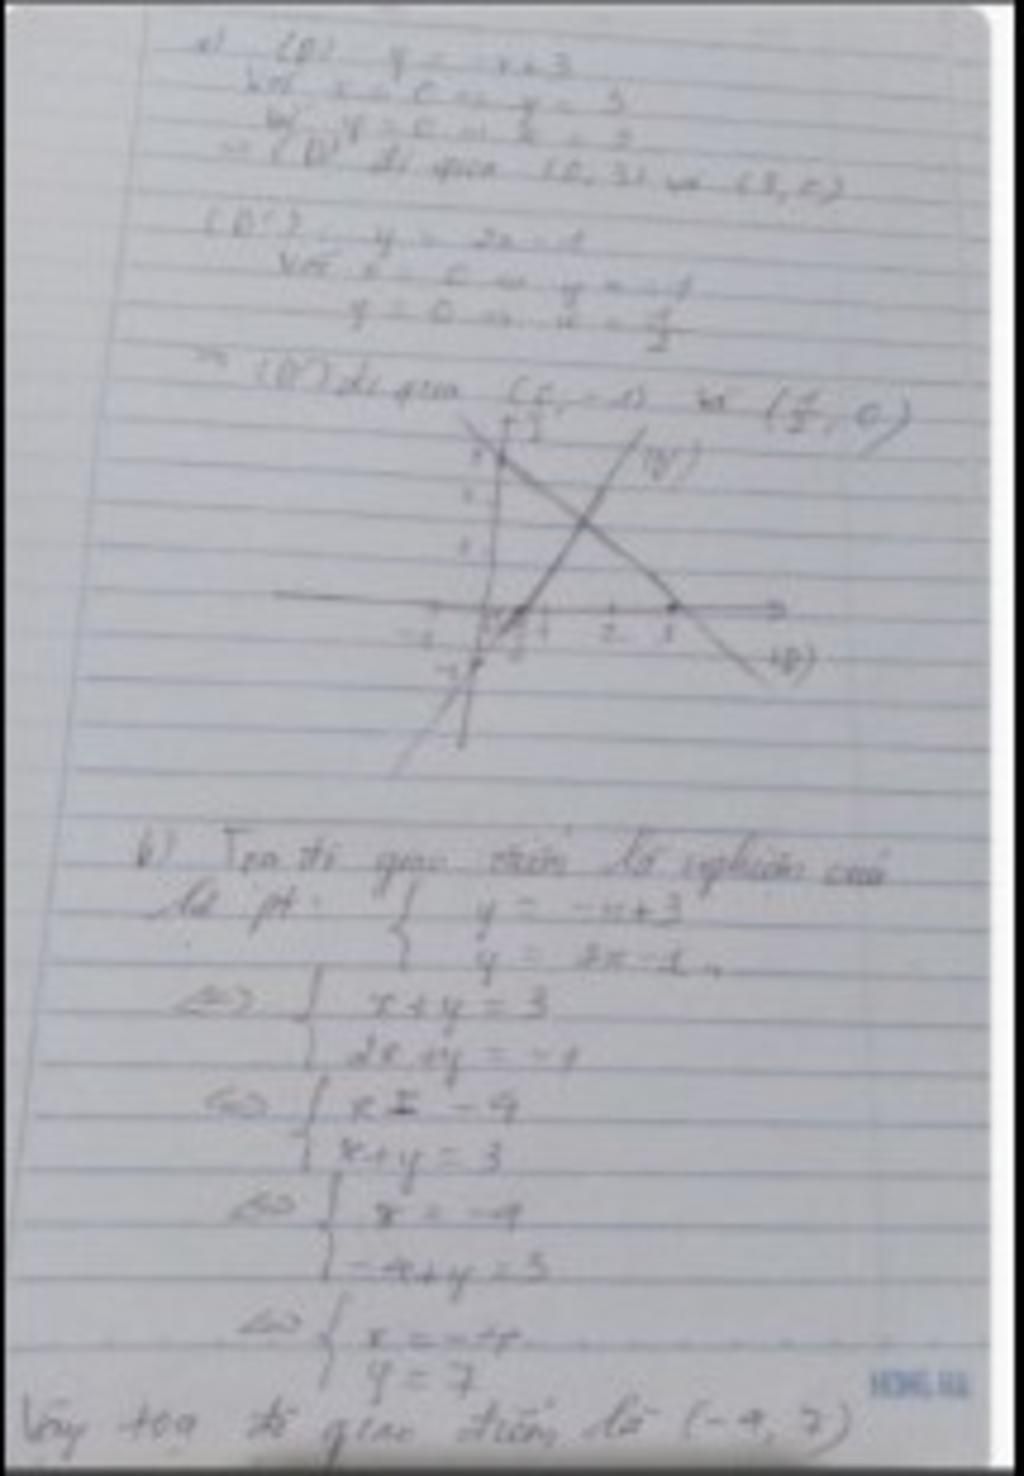 a) (D) y = -x+3
Với x = 0 => y = 3
Với y = 0 => x = 3
=> (D) đi qua (0, 3) và (3, 0)
(D') y = 2x - 1
Với x = 0 => y = -1
y = 0 => x = 1/2
=> (D') đi qua (0, -1) và (1/2, 0)
(D')
3
-1 1 2 3
-1
(D)
b) Tọa độ giao điểm là nghiệm của
hệ pt: { y = -x+3
y = 2x-1
<=> { x+y = 3
2x+y = -1
<=> { x = -4
x+y = 3
<=> { x = -4
-4+y = 3
<=> { x = -4
y = 7
Vậy tọa độ giao điểm là (-4, 7)
HONG HA